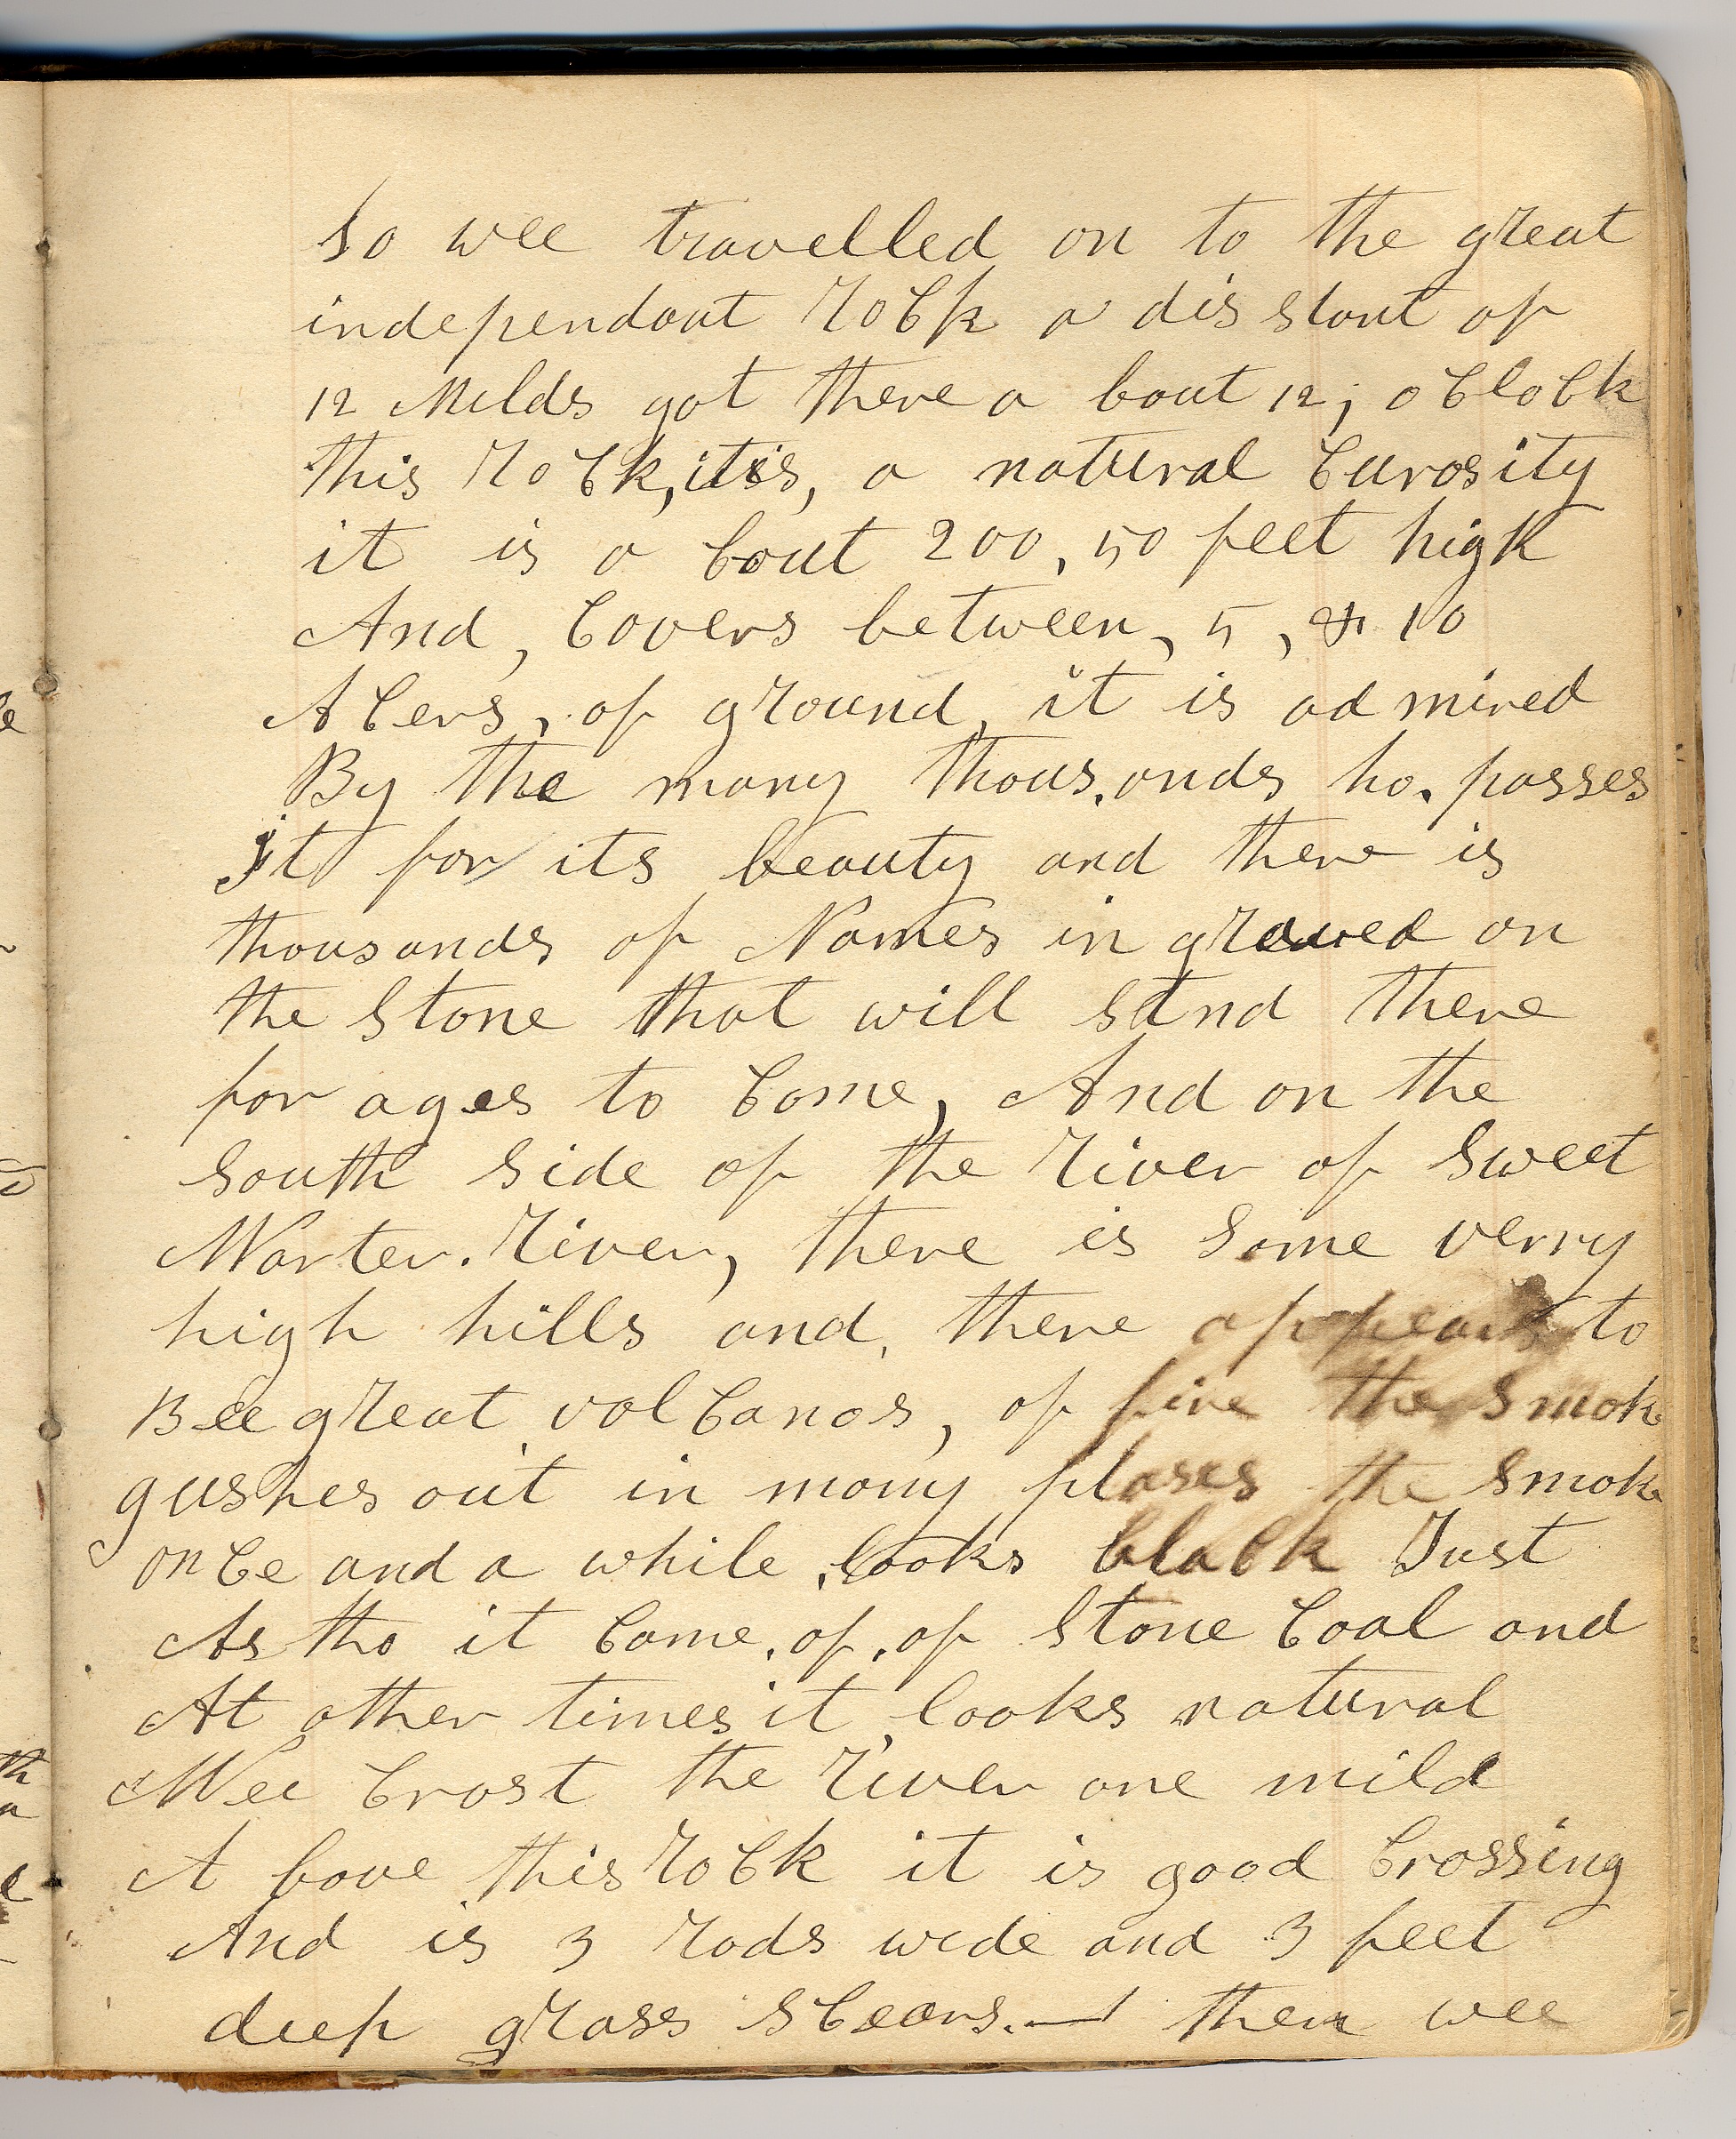 so wee travelled on to the great
independant rock a dis stant of
12 Milds got there a bout 12; oclock
this rock, itis, a natural Curosity
it is a bout 200, 50 feet high
And, Covers between, 5, & 10
A Cers, of ground, it is ad mired
By the many thous.ands ho. passes
it for its beauty and there is
thousands of Names in graved on
the Stone that will stnd there
for ages to Come, And on the
South Side of the river of Sweet
Warter. river, there is Some verry
high hills and, there appears to
Bee great volCanos, of fire the Smoke
gushes out in many plases the Smoke
once and a while, looks black Just
As tho it Came. of. of Stone Coal and
At other times it looks natural
Wee Crost the river one mild
A bove this rock it is good Crossing
And is 3 rods wide and 3 feet
deep grass sCears. — then wee